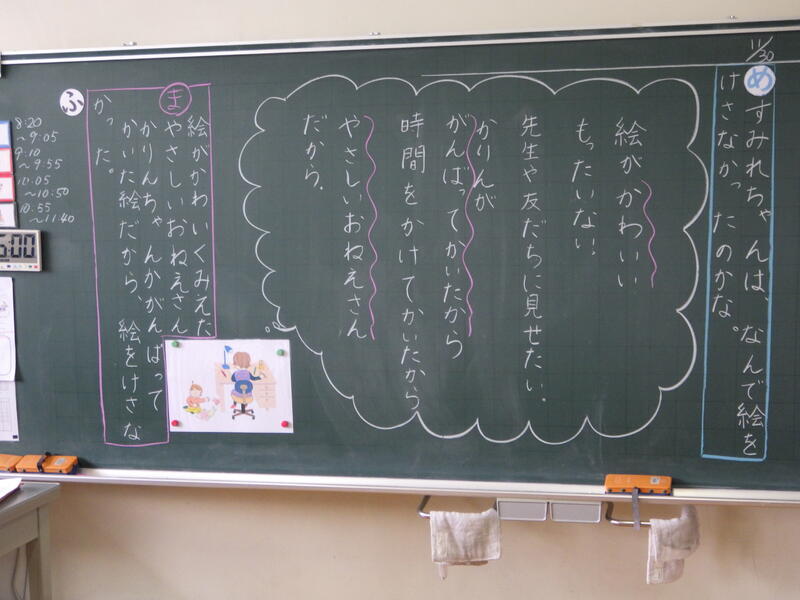 11/30
め
すみれちゃんは、なんで絵を
けさなかったのかな。
絵がかわいい
もったいない!
先生や友だちに見せたい。
かりんが
がんばってかいたから
時間をかけてかいたから
やさしいおねえさん
だから、
ま
絵がかわいくみえた
やさしいおねえさん
かりんちゃんががん ばって
かいた絵だから、絵をけさな
かった。
ふ
8:20
~9:05
9:10
~9:55
10:05
~10:50
10:55
~11:40